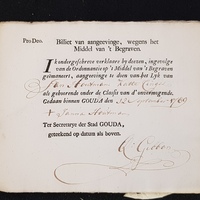 Pro Deo.
Billiet van aangeevinge, wegens het
Middel van 't Begraven.
Ik ondergeschreve verklaare by dezen, ingevolge
van de Ordonnantie op 't Middel van 't Begraven
geëmaneert, aangeevinge te doen van het Lyk van
als gehoorende onder de Classis van d'onvermogende.
Gedaan binnen GOUDA den 22 September 1769
Ter Secretarye der Stad GOUDA,
geteekend op datum als boven.